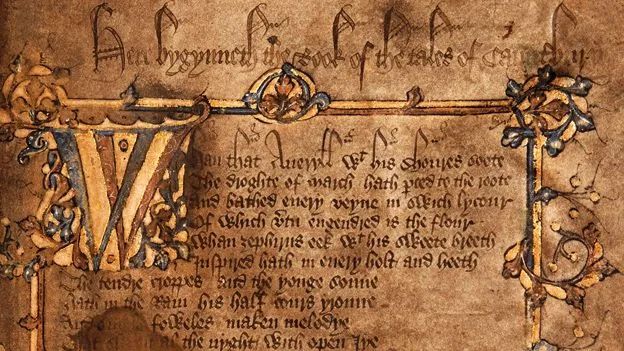 Here bygynneth the Book of the tales of Caunterbury
Whan that Aueryłł wt his shoures soote
The droghte of march hath perced to the roote
And bathed euery veyne in swich lycour
Of which vtu engendred is the flour
Whan zephirus eek wt his sweete breeth
Inspired hath in euery holt and heeth
The tendre croppes and the yonge sonne
Hath in the Ram his half cours yronne
And smale foweles maken melodye
That slepen al the nyght with open Iye